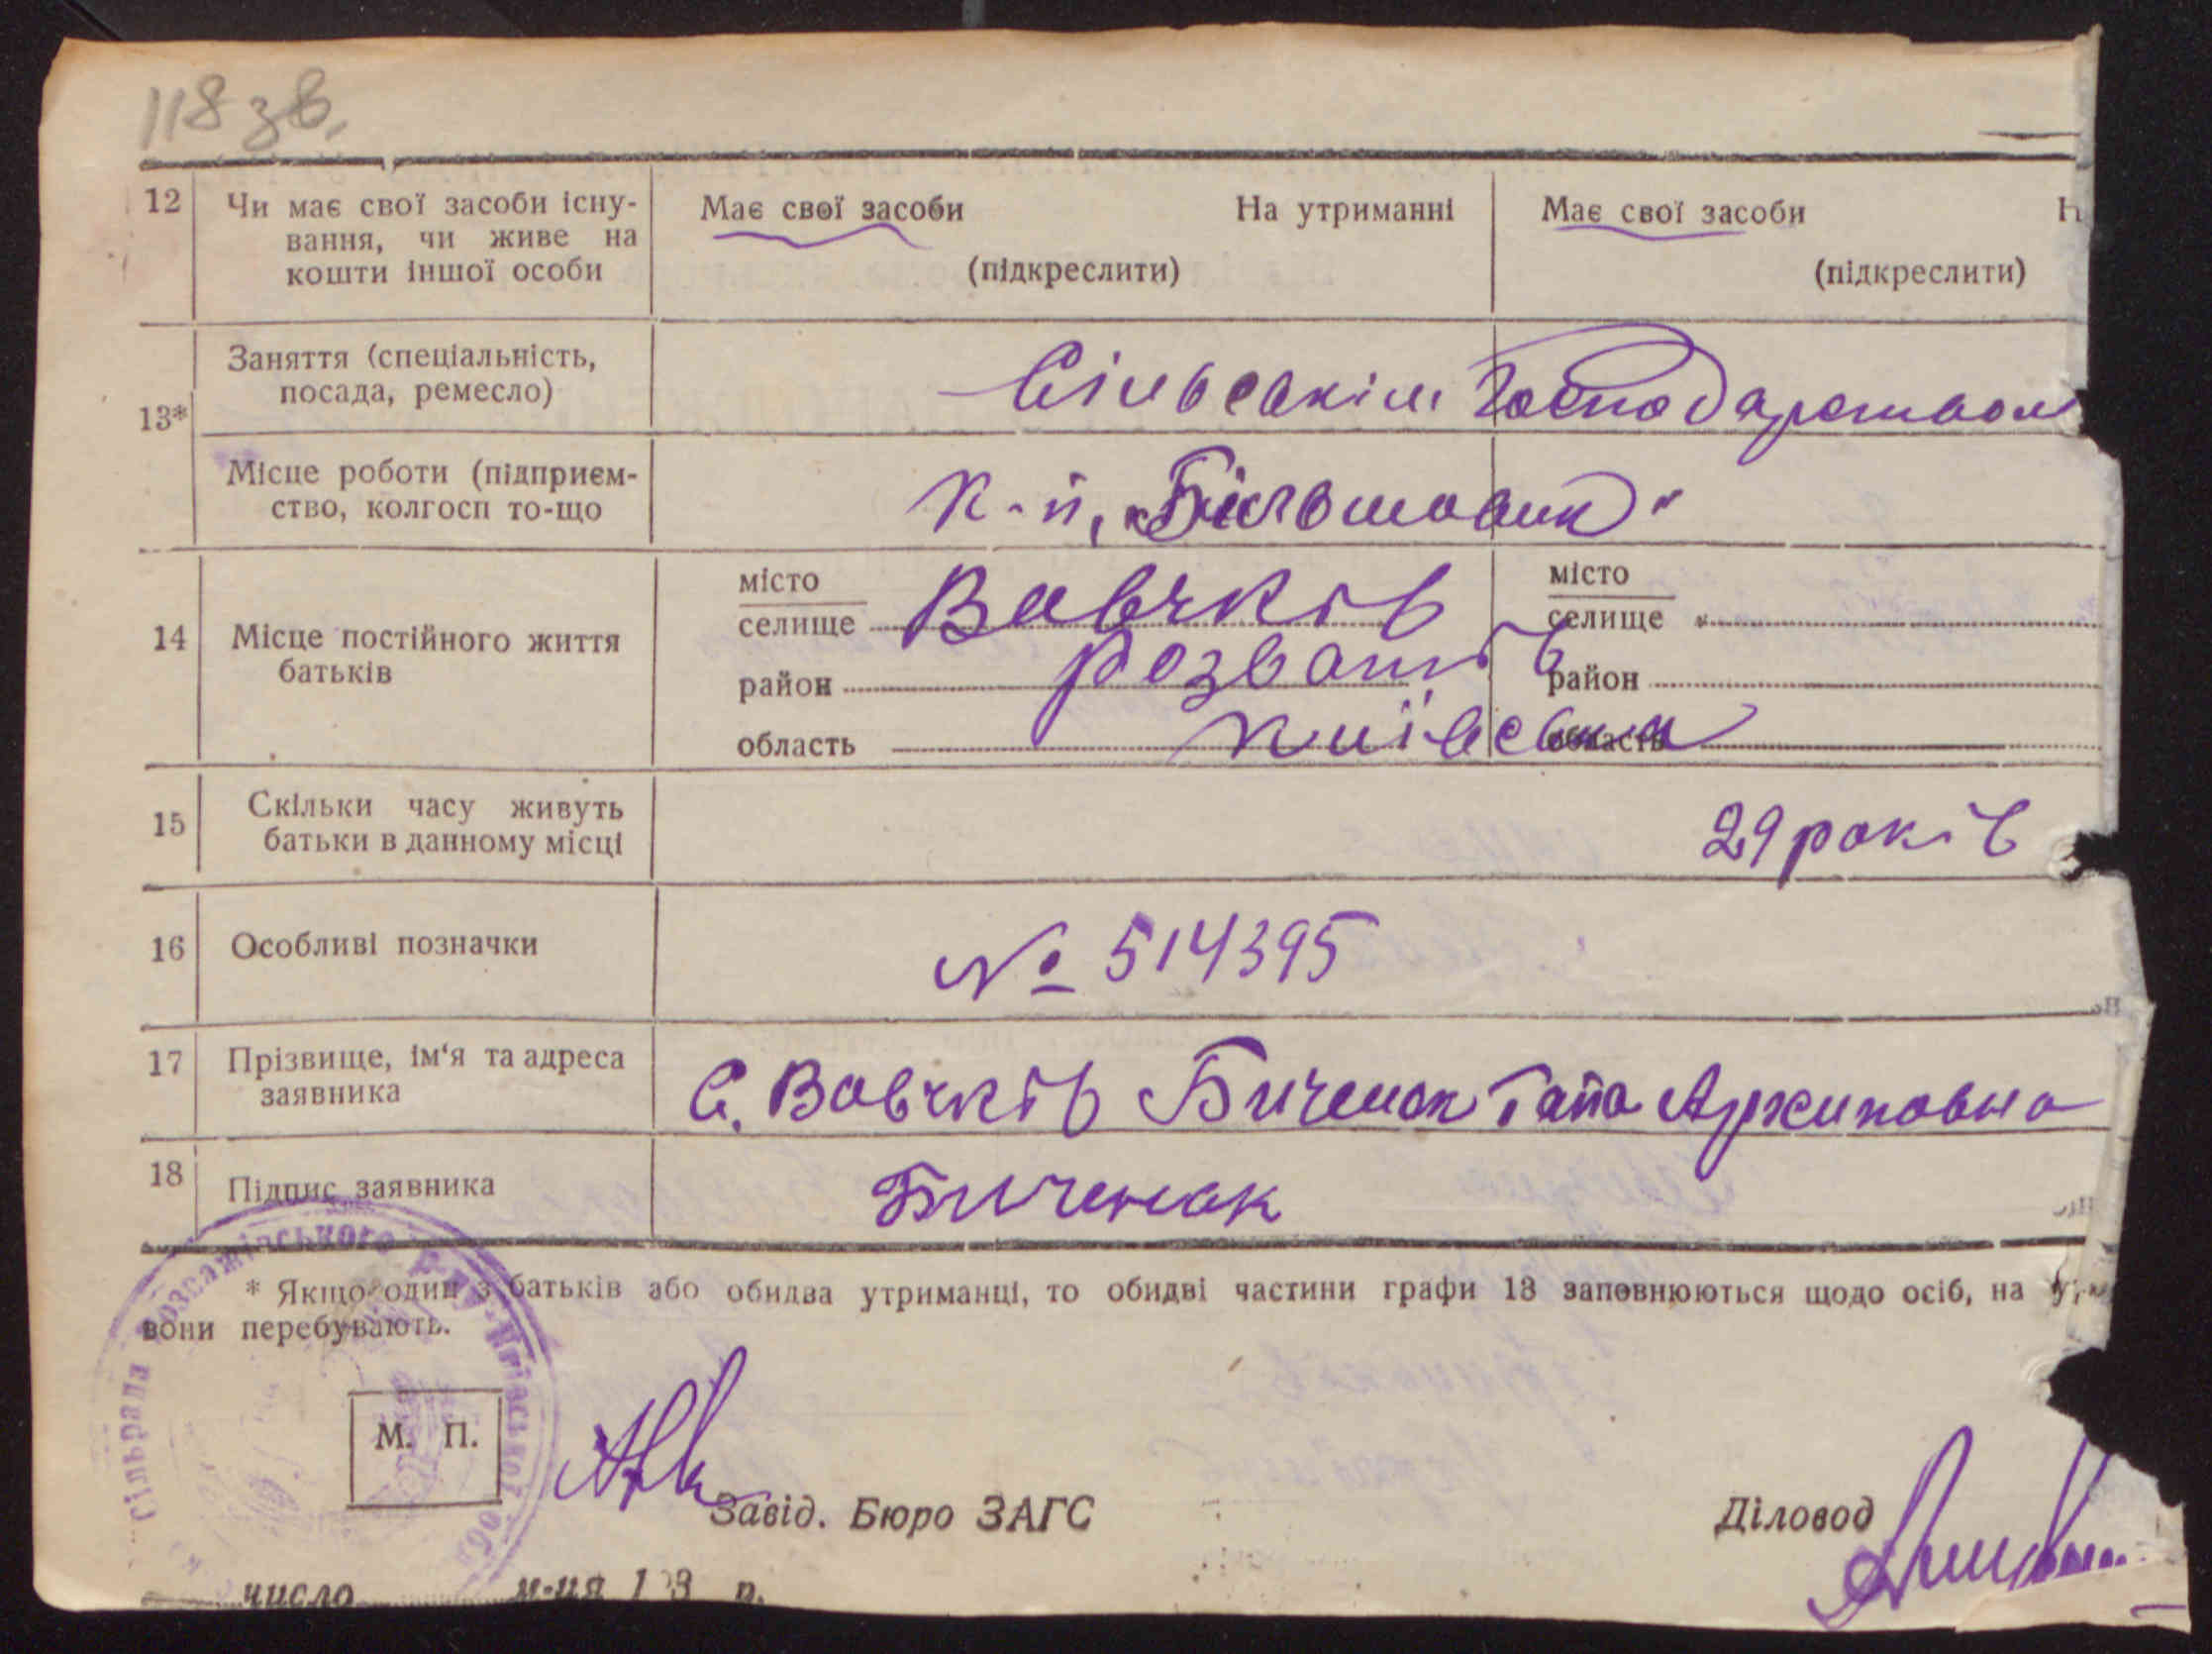 118 зв.
12 Чи має свої засоби існу-
вання, чи живе на
кошти іншої особи
Має свої засоби На утриманні
(підкреслити)
Має свої засоби Н
(підкреслити)
13*
Заняття (спеціальність,
посада, ремесло)
Сільським Господарством
Місце роботи (підприєм-
ство, колгосп то-що
к-п, „Більшовик"
14 Місце постійного життя
батьків
місто
селище Вовчків
район Розваж в
область Київська
місто
селище
район
область
15 Скільки часу живуть
батьки в данному місці
29 років
16 Особливі позначки
№ 514395
17 Прізвище, ім'я та адреса
заявника
С. Вовчків Биченок Гапа Архиповна
18 Підпис заявника
Биченок
* Якщо один з батьків або обидва утриманці, то обидві частини графи 13 заповнюються щодо осіб, на
вони перебувають.
Сільрада Розважівського р-ну Київської обл
М. П.
Завід. Бюро ЗАГС
Діловод
число м-ця 193 р.